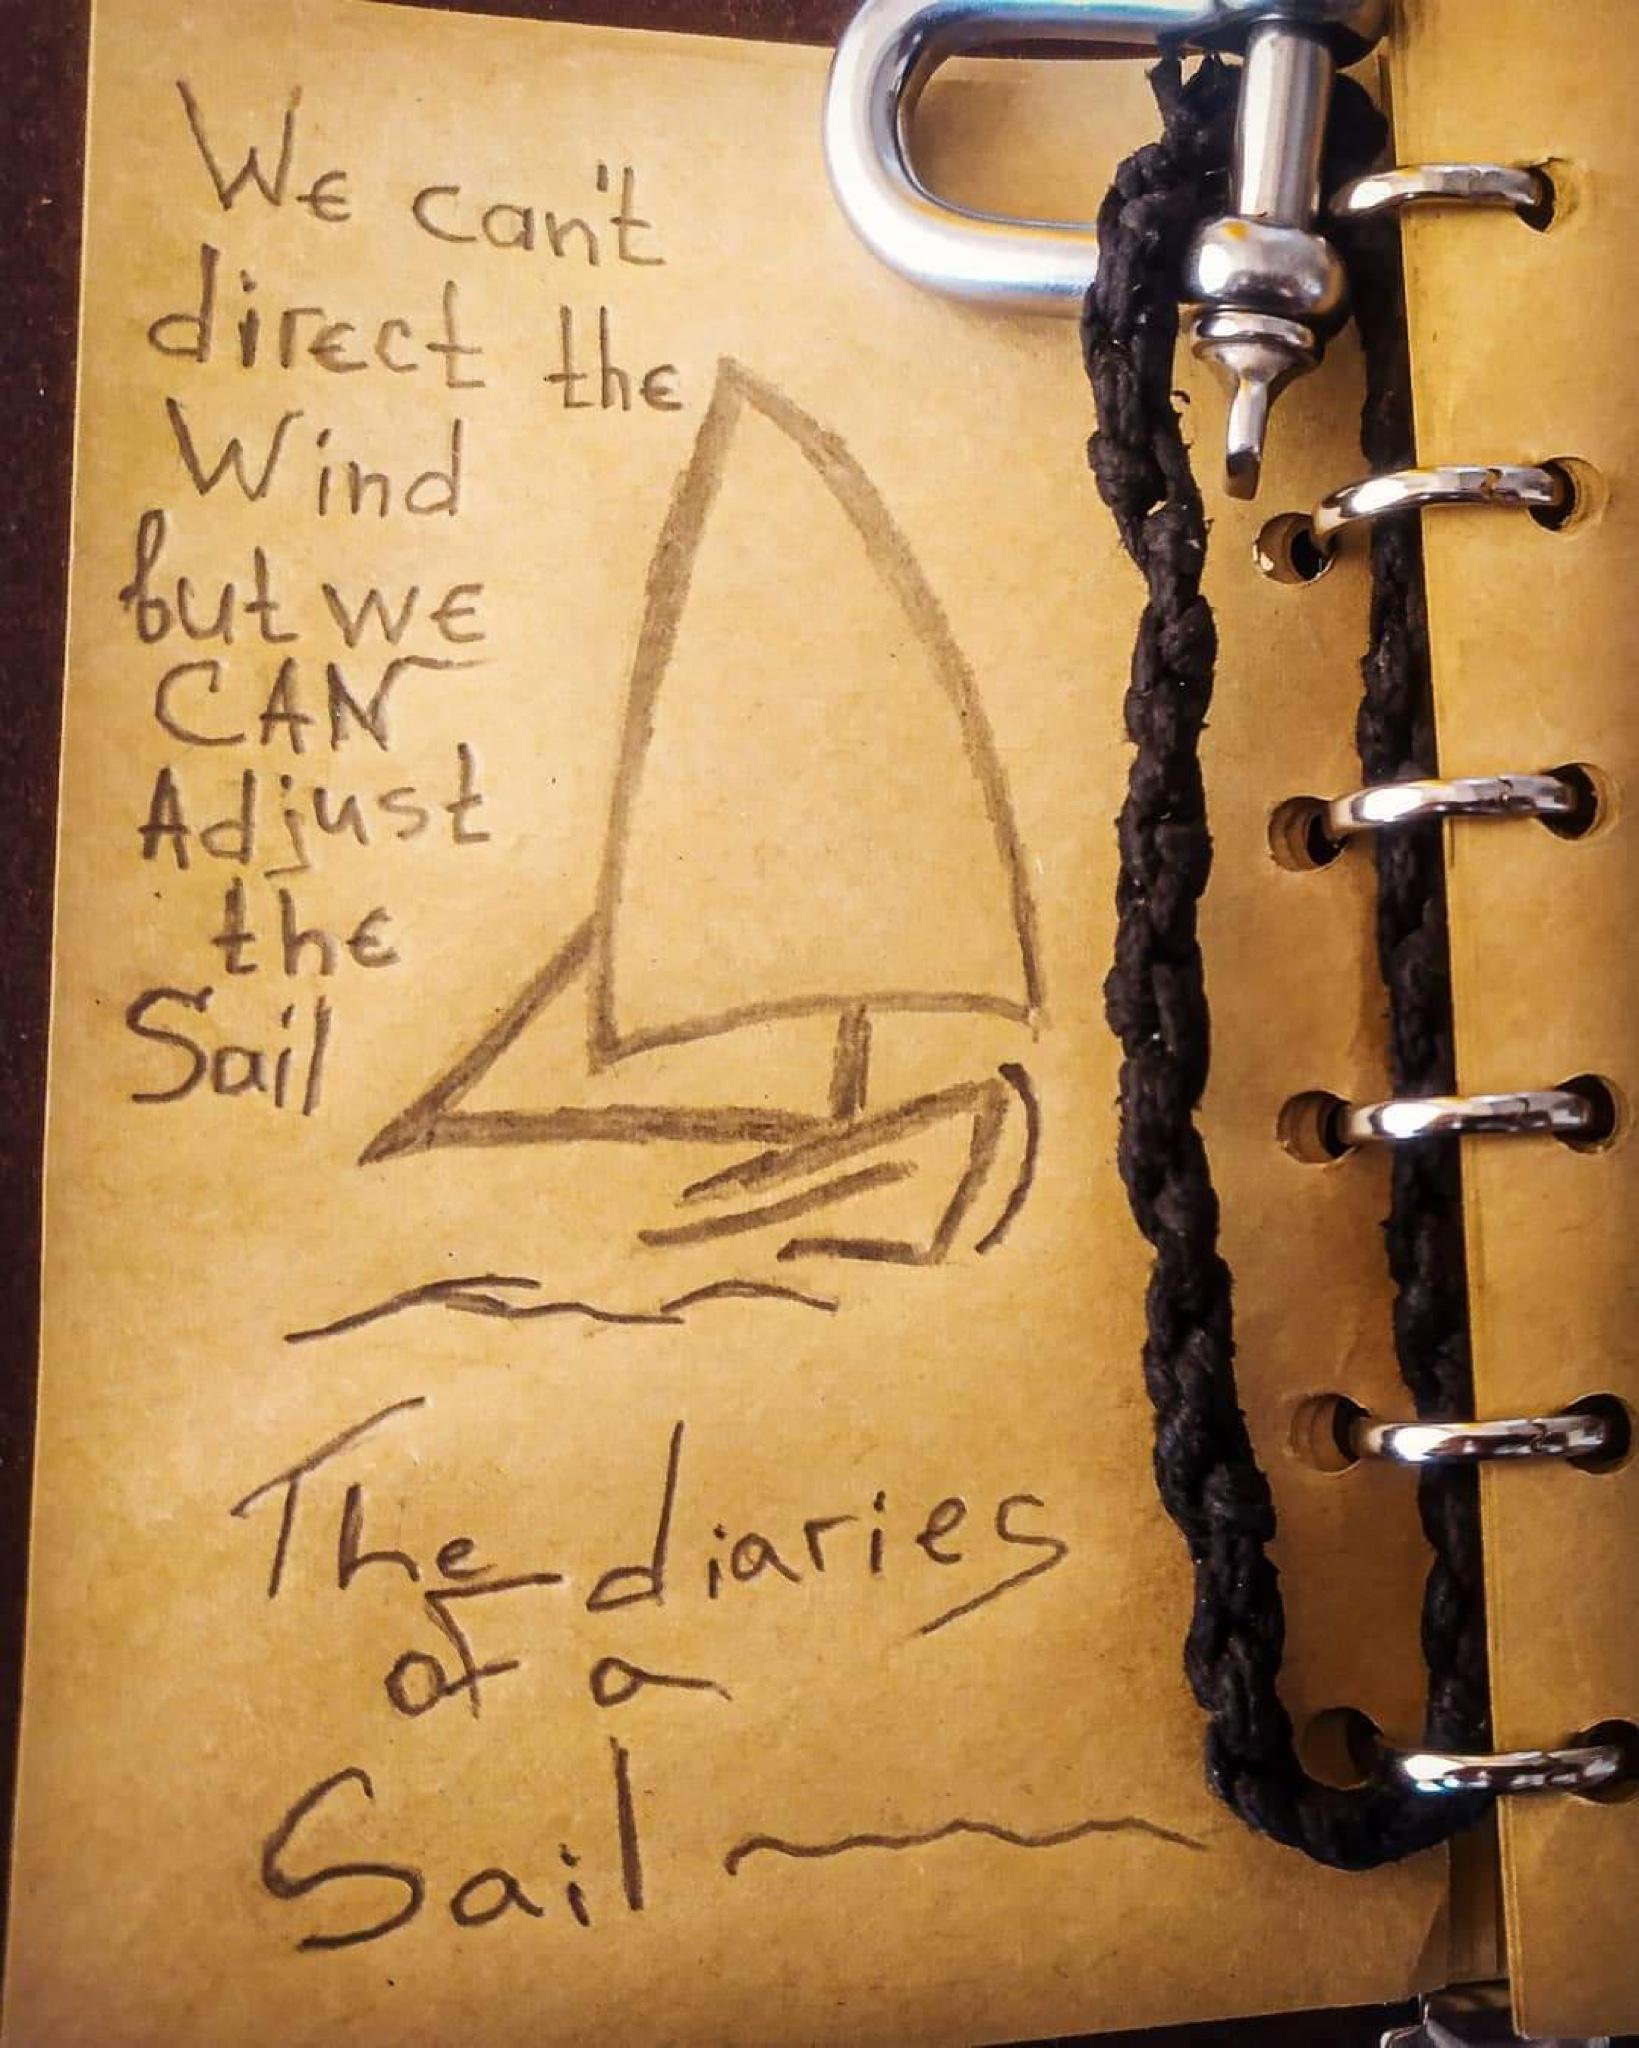 We can't
direct the
Wind
but we
CAN
Adjust
the
Sail
The diaries
of a
Sail